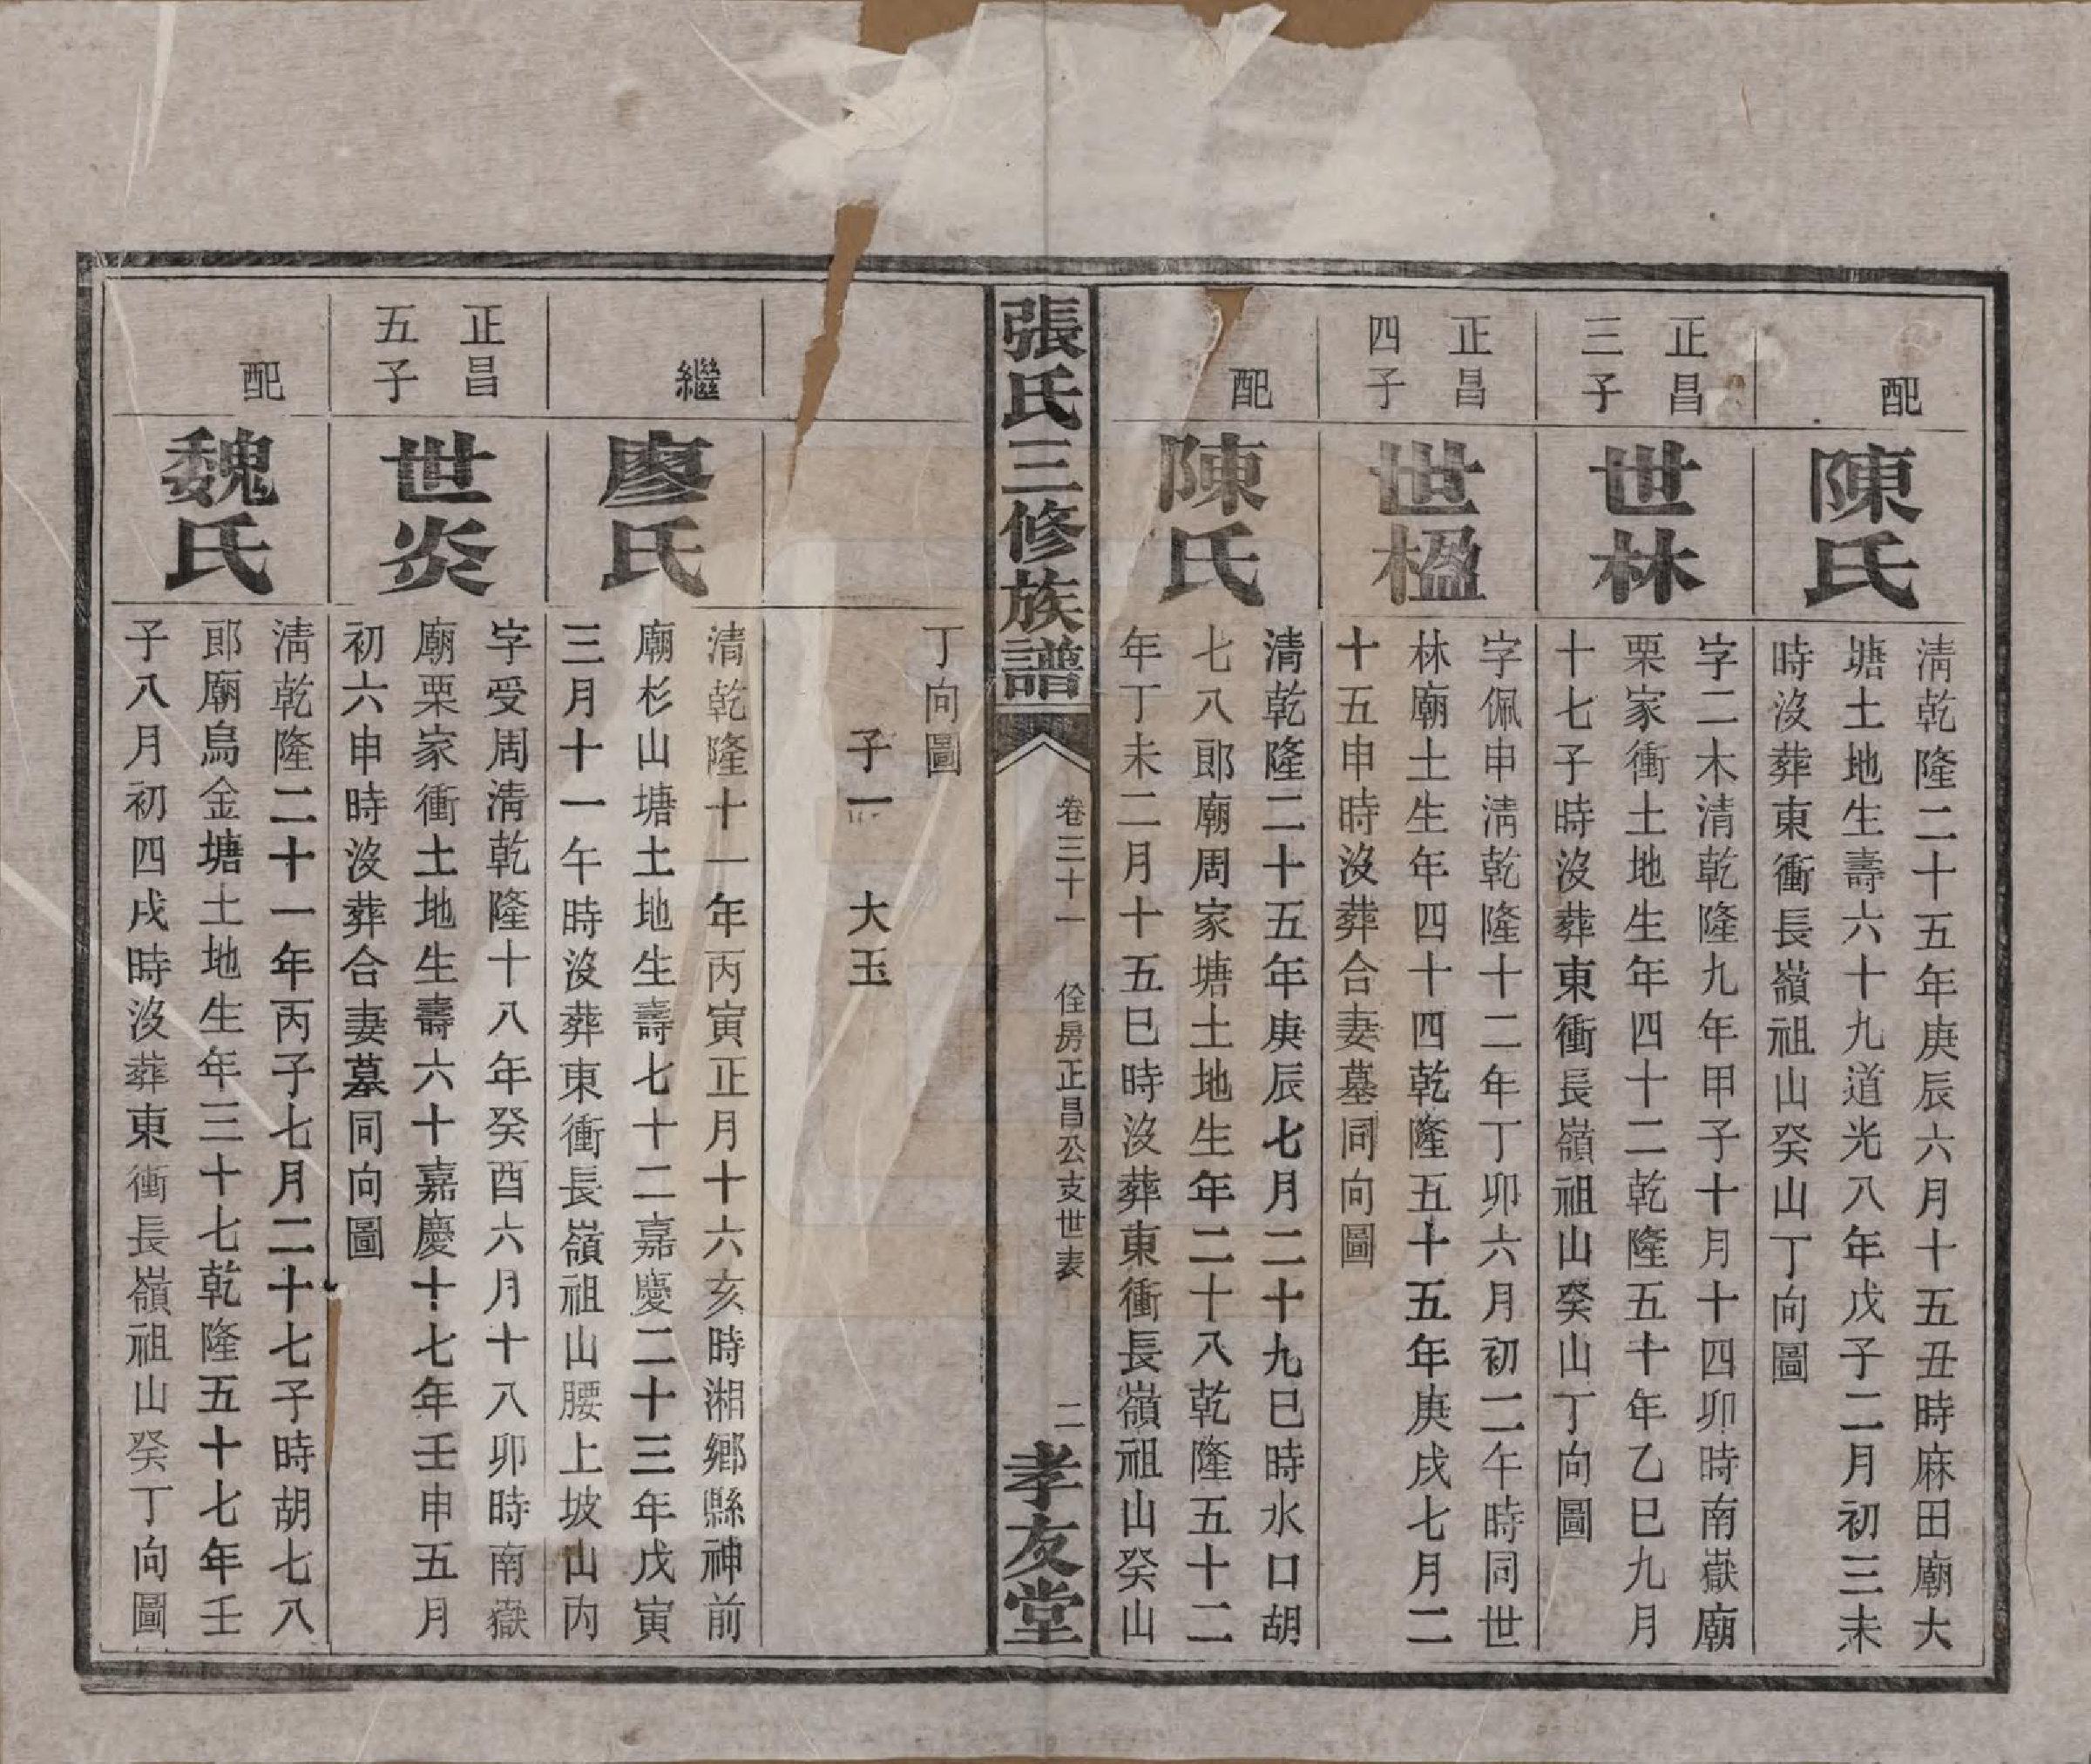 配
陳氏
淸乾隆二十五年庚辰六月十五丑時麻田廟大
塘土地生壽六十九道光八年戊子二月初三未
時沒葬東衝長嶺祖山癸山丁向圖
正昌
三子
世林
字二木清乾隆九年甲子十月十四卯時南嶽廟
栗家衝土地生年四十二乾隆五十年乙巳九月
十七子時沒葬東衝長嶺祖山癸山丁向圖
正昌
四子
世楹
字佩申淸乾隆十二年丁卯六月初二午時同世
林廟土生年四十四乾隆五十五年庚戌七月二
十五申時沒葬合妻墓同向圖
配
陳氏
清乾隆二十五年庚辰七月二十九巳時水口胡
七八郎廟周家塘土地生年二十八乾隆五十二
年丁未二月十五巳時沒葬東衝長嶺祖山癸山
張氏三修族譜
卷三十一 佺房正昌公支世表 二
孝友堂
丁向圖
子一 大玉
繼
廖氏
清乾隆十一年丙寅正月十六亥時湘鄉縣神前
廟杉山塘土地生壽七十二嘉慶二十三年戊寅
三月十一午時沒葬東衝長嶺祖山腰上坡山內
正昌
五子
世炎
字受周清乾隆十八年癸酉六月十八卯時南嶽
廟栗家衝土地生壽六十嘉慶十七年壬申五月
初六申時沒葬合妻墓同向圖
配
魏氏
淸乾隆二十一年丙子七月二十七子時胡七八
郎廟烏金塘土地生年三十七乾隆五十七年壬
子八月初四戌時沒葬東衝長嶺祖山癸丁向圖